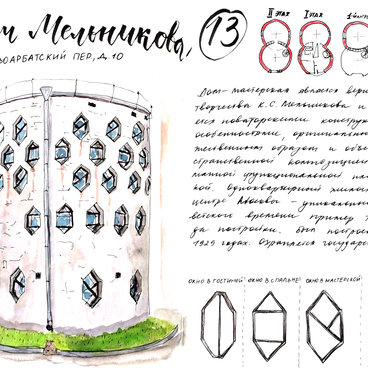 м Мельникова,
ЬОАРБАТСКИЙ ПЕР, Д.10
13
II ЭТАЖ
I ЭТАЖ
Дом-мастерская является верш
творчества К.С. Мельникова и
ется новаторскими конструк
особенностями,
жественным образом и объе
странственной композицией
манной функциональной план
кой. Одноквартирный жилой
центре Москвы - уникальны
ветского времени пример т
да постройки. Был построе
1929 годах. Охраняется государс
ОКНО В ГОСТИНОЙ
ОКНО В СПАЛЬНЕ
ОКНО В МАСТЕРСКОЙ